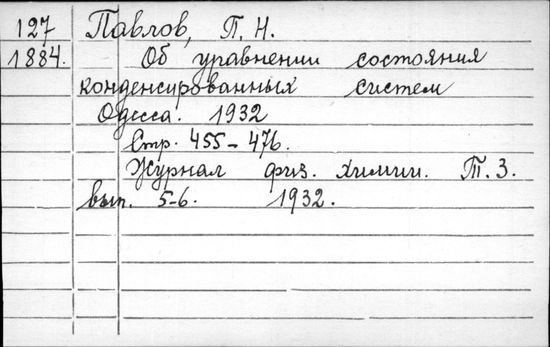 127 Павлов, П. Н.
1884. Об уравнении состояния
конденсированных систем
Одесса. 1932
Стр. 455-476.
Журнал физ. химии. Т. 3.
вып. 5-6. 1932.